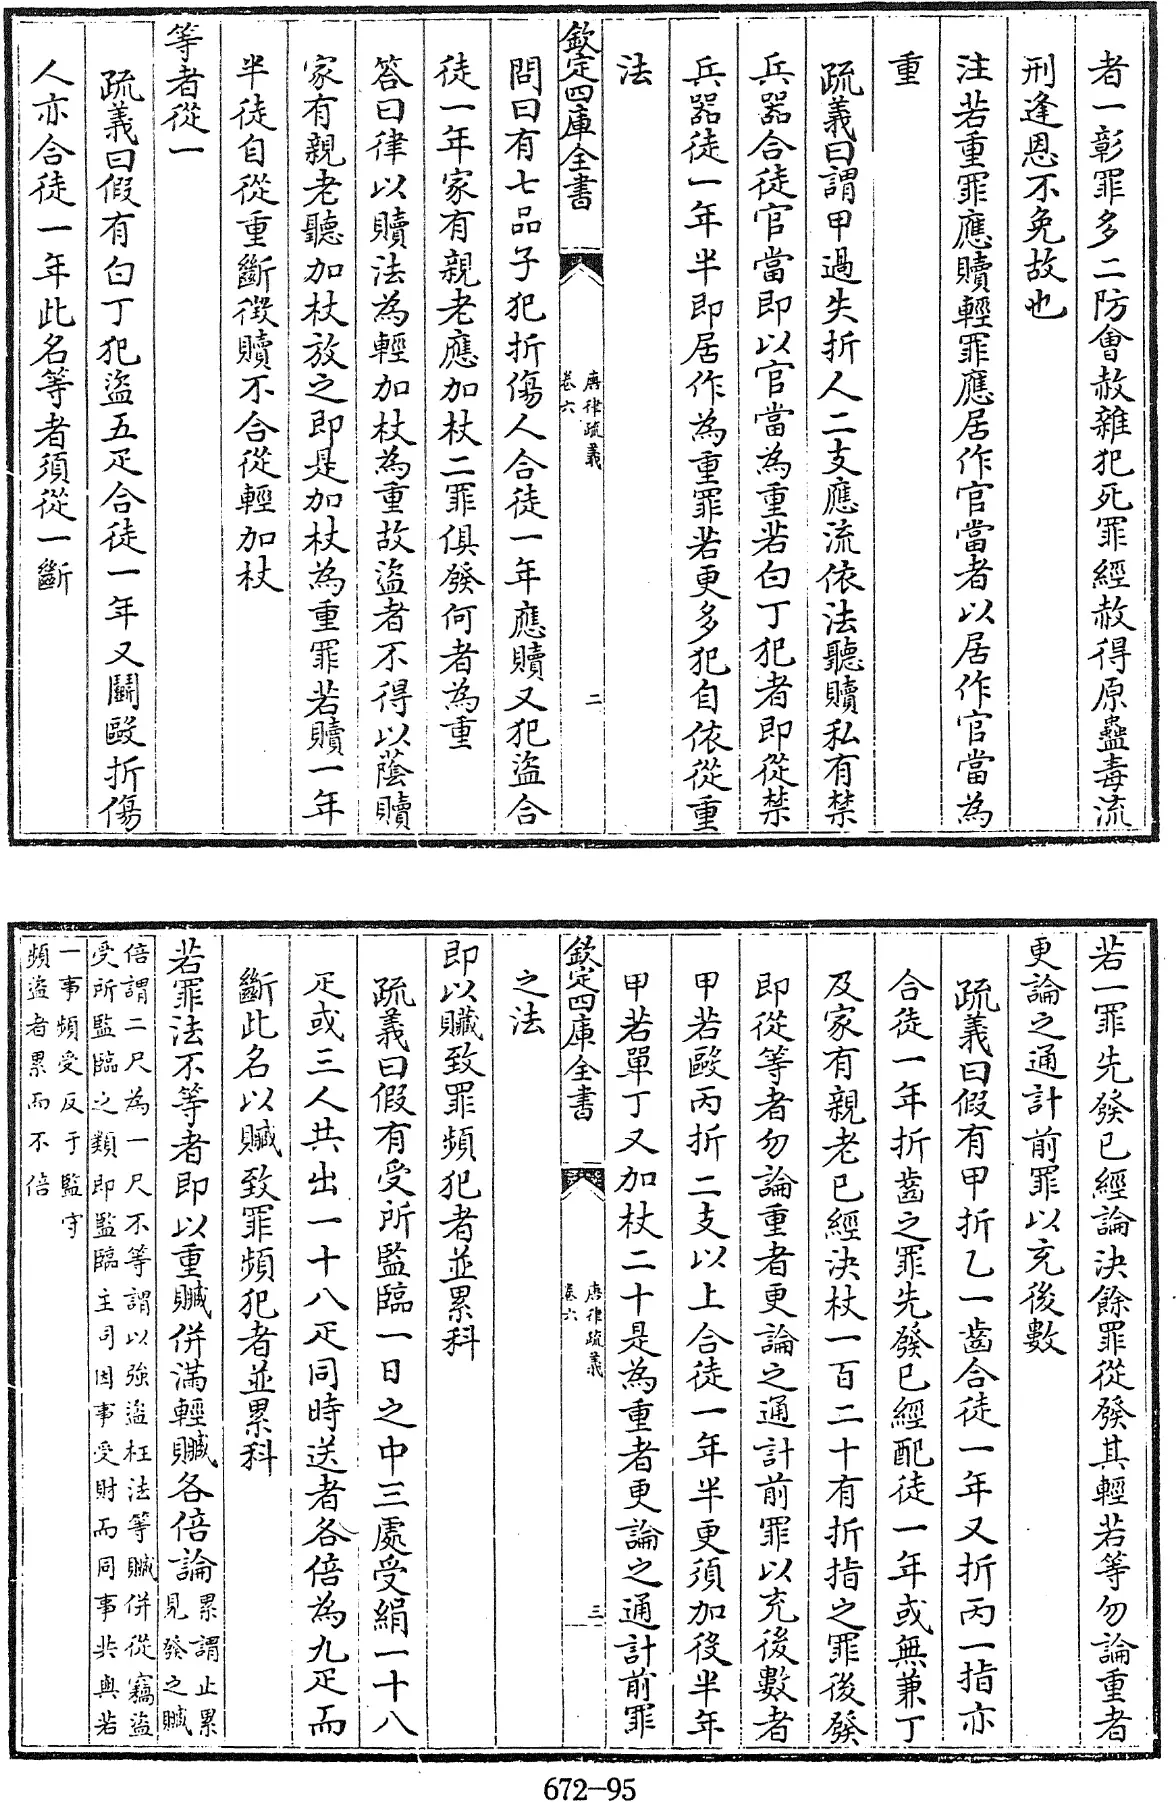 者一彰罪多二防會赦雜犯死罪經赦得原蠱毒流
刑逢恩不免故也
注若重罪應贖輕罪應居作官當者以居作官當為
重
疏義曰謂甲過失折人二支應流依法聽贖私有禁
兵器合徒官當即以官當為重若白丁犯者即從禁
兵器徒一年半即居作為重罪若更多犯自依從重
法
欽定四庫全書
唐律疏義
卷六
二
問曰有七品子犯折傷人合徒一年應贖又犯盜合
徒一年家有親老應加杖二罪俱發何者為重
答曰律以贖法為輕加杖為重故盜者不得以蔭贖
家有親老聽加杖放之即是加杖為重罪若贖一年
半徒自從重斷徵贖不合從輕加杖
等者從一
疏義曰假有白丁犯盜五疋合徒一年又鬭毆折傷
人亦合徒一年此名等者須從一斷
若一罪先發已經論決餘罪從發其輕若等勿論重者
更論之通計前罪以充後數
疏義曰假有甲折乙一齒合徒一年又折丙一指亦
合徒一年折齒之罪先發已經配徒一年或無兼丁
及家有親老已經決杖一百二十有折指之罪後發
即從等者勿論重者更論之通計前罪以充後數者
甲若毆丙折二支以上合徒一年半更須加役半年
甲若單丁又加杖二十是為重者更論之通計前罪
欽定四庫全書
唐律疏義
卷六
三
之法
即以贓致罪頻犯者並累科
疏義曰假有受所監臨一日之中三處受絹一十八
疋或三人共出一十八疋同時送者各倍為九疋而
斷此名以贓致罪頻犯者並累科
若罪法不等者即以重贓併滿輕贓各倍論
累謂止累
見發之贓
倍謂二尺為一尺不等謂以強盜枉法等贓併從竊盜
受所監臨之類即監臨主司因事受財而同事共與若
一事頻受反于監守
頻盜者累而不倍
672-95